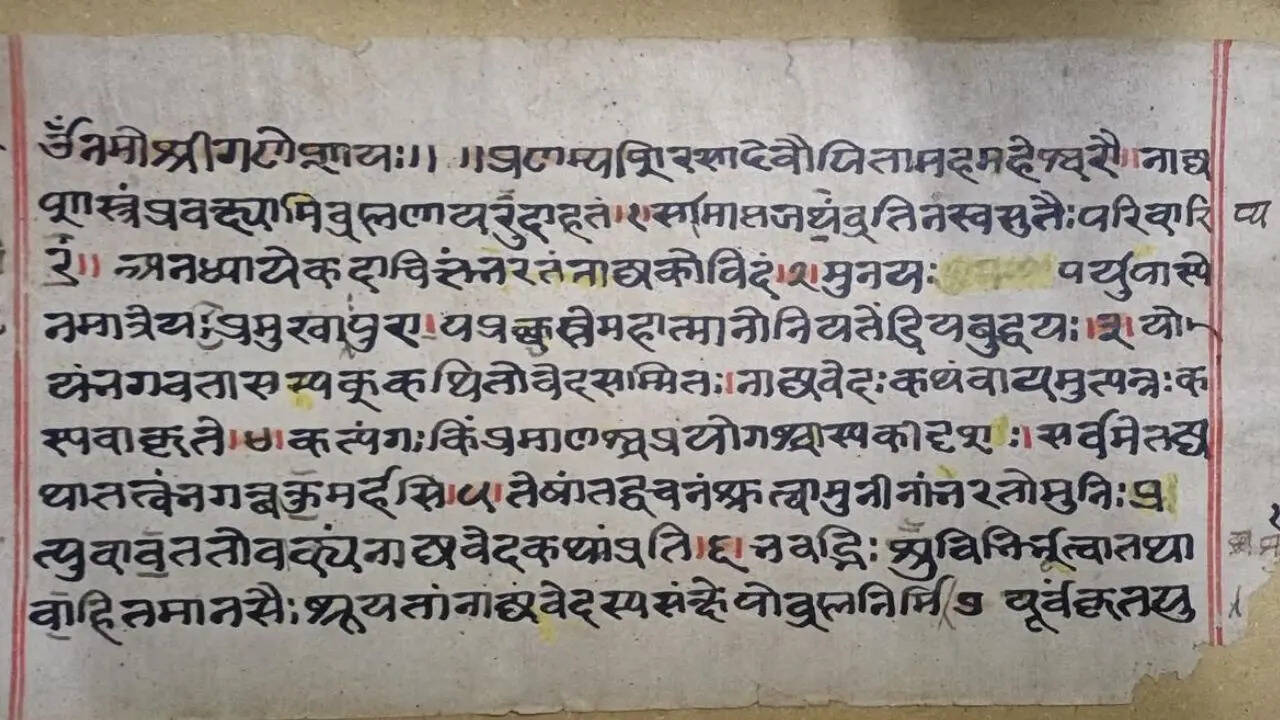 ॐनमोश्रीगणेशायः।। ।।प्रणम्यशिरसादेवौपितामहमहेश्वरौ।।नाट्य
शास्त्रंप्रवक्ष्यामिब्रह्मणायदुदाहृतं।१।समाप्तजप्यंव्रतिनंस्वसुतैःपरिवारि
तं।। अनध्यायेकदाचित्तुभरतंनाट्यकोविदं।२।मुनयः पर्युपास्ये
नमात्रेयःप्रमुखापुरा।पप्रच्छुस्तेमहात्मानोनियतेंद्रियबुद्धयः।३।यो
यंभगवतासम्यक्कथितोवेदसम्मितः।नाट्यवेदःकथंवायमुत्पन्नःक
स्यवाकृते।४।कत्यंगःकिंप्रमाणश्चप्रयोगश्चास्यकीदृशः।सर्वमेतद्य
थातत्वंभगवन्वक्तुमर्हसि।५।तेषांतद्वचनंश्रुत्वामुनीनांभरतोमुनिः।प्र
त्युवाचततोवाक्यंनाट्यवेदकथांप्रति।६।भवद्भिःशुचिभिर्भूत्वातथा
वहितमानसैः।श्रूयतांनाट्यवेदस्यसंभवोब्रह्मनिर्मि ७ पूर्वंकृतयु